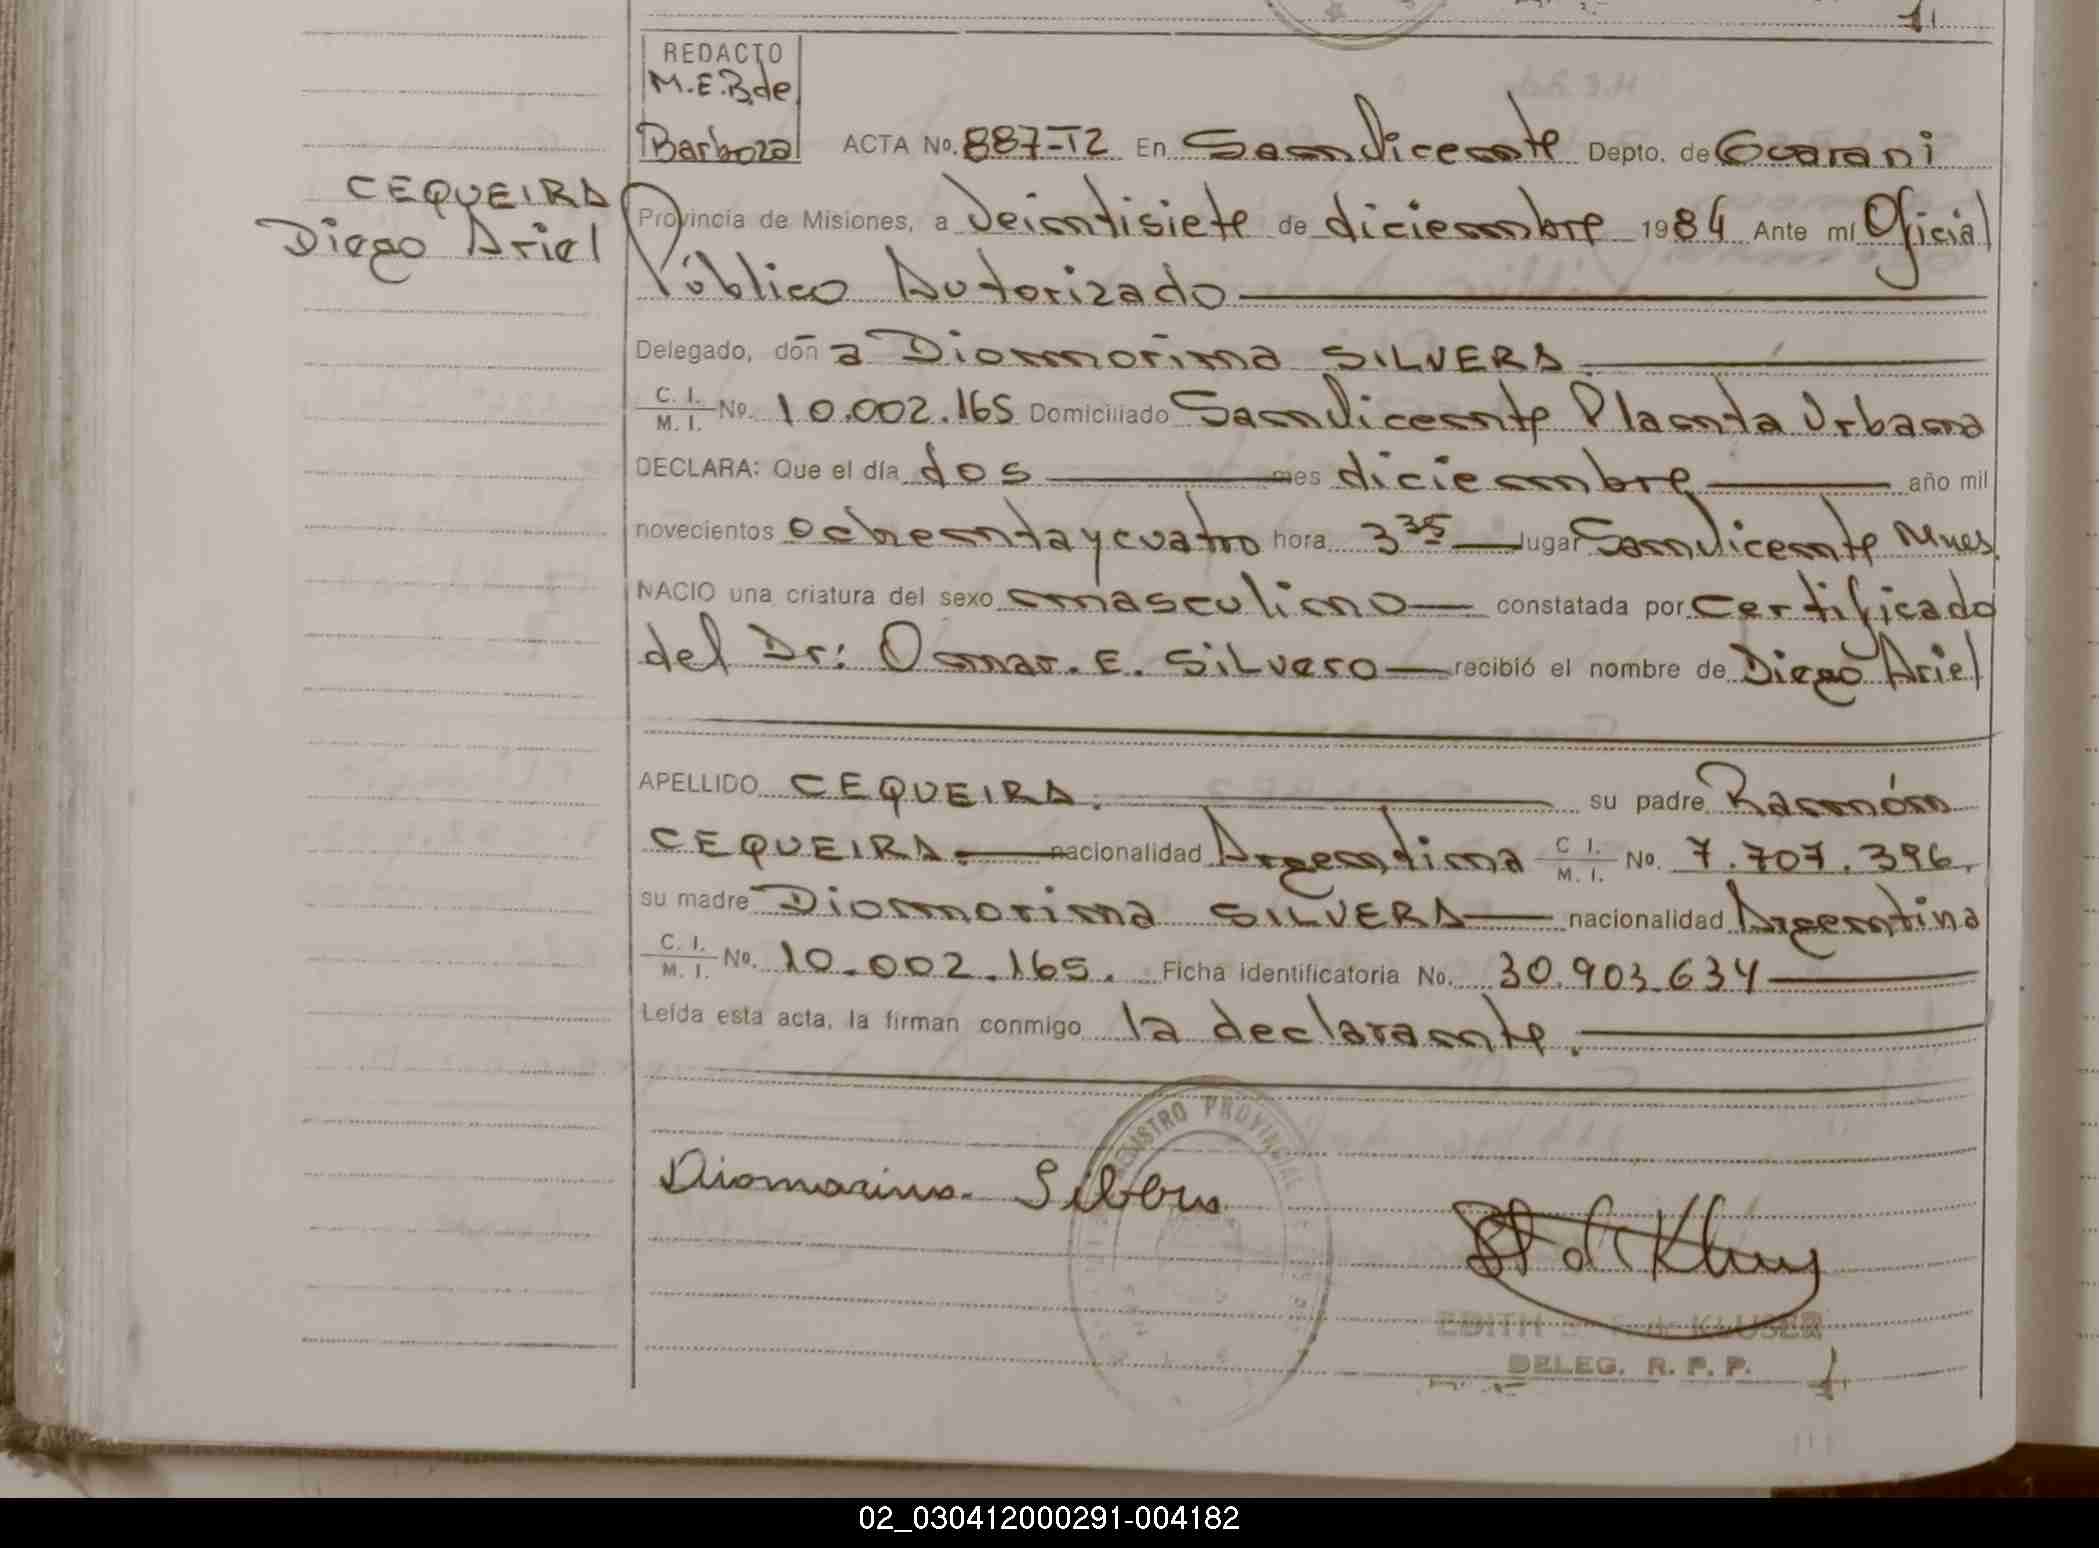 REDACTO
M.E.B.de
Barboza ACTA No. 887-T2 En San Vicente Depto. de Guarani
CEQUEIRA
Diego Ariel
Provincia de Misiones, a Veintisiete de diciembre 1984 Ante mí Oficial
Público Autorizado
Delegado, don a Diomorina SILVERA
C. I. M. I. No. 10.002.165 Domiciliado San Vicente Planta Urbana
DECLARA: Que el día dos mes diciembre año mil
novecientos ochenta y cuatro hora 3 35 lugar San Vicente Mnes.
NACIO una criatura del sexo masculino constatada por certificado
del Dr: Osmar. E. SiLvero recibió el nombre de Diego Ariel
APELLIDO CEQUEIRA. su padre Ramón
CEQUEIRA. nacionalidad Argentina C. I. M. I. No. 7.707.396.
su madre Diomorina SILVERA nacionalidad Argentina
C. I. M. I. No. 10.002.165. Ficha identificatoria No. 30.903.634
Leída esta acta, la firman conmigo la declarante.
REGISTRO PROVINCIAL
Diomarina
EDITH de KLUSER
DELEG. R. P. P.
02_030412000291-004182